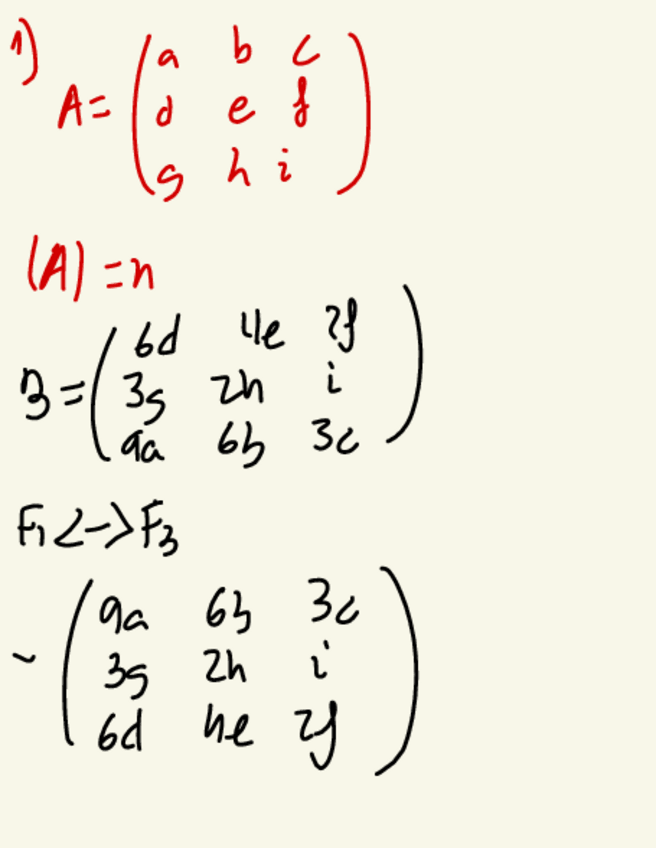 1)
A = ( a b c
d e f
g h i )
|A| = n
B = ( 6d 4e 2f
3g 2h i
9a 6b 3c )
F₁ <-> F₃
~ ( 9a 6b 3c
3g 2h i
6d 4e 2f )